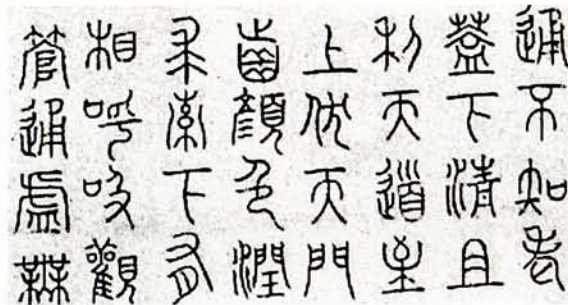 通不知老
蓋下清且
利天道至
上伏天門
齒顏色潤
求索下有
相呼吸觀
管通虛無